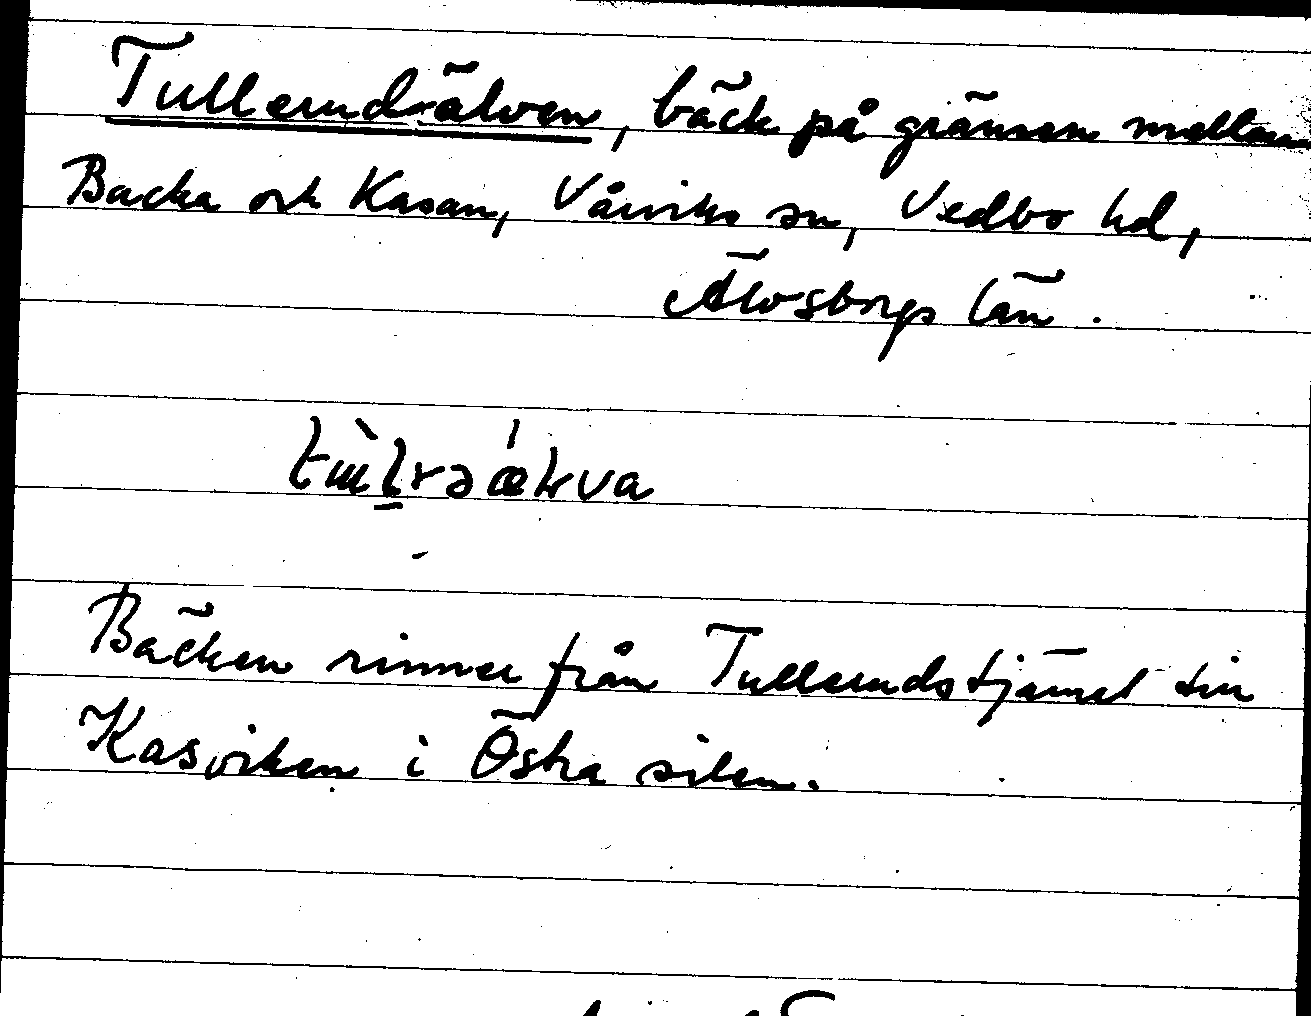 Tullerudsälven, bäck på gränsen mellan
Backa och Kasan, Vårviks sn, Vedbo hd,
Älvsborgs län.
Bäcken rinner från Tullerudstjärnet till
Kasviken i Östra silen.